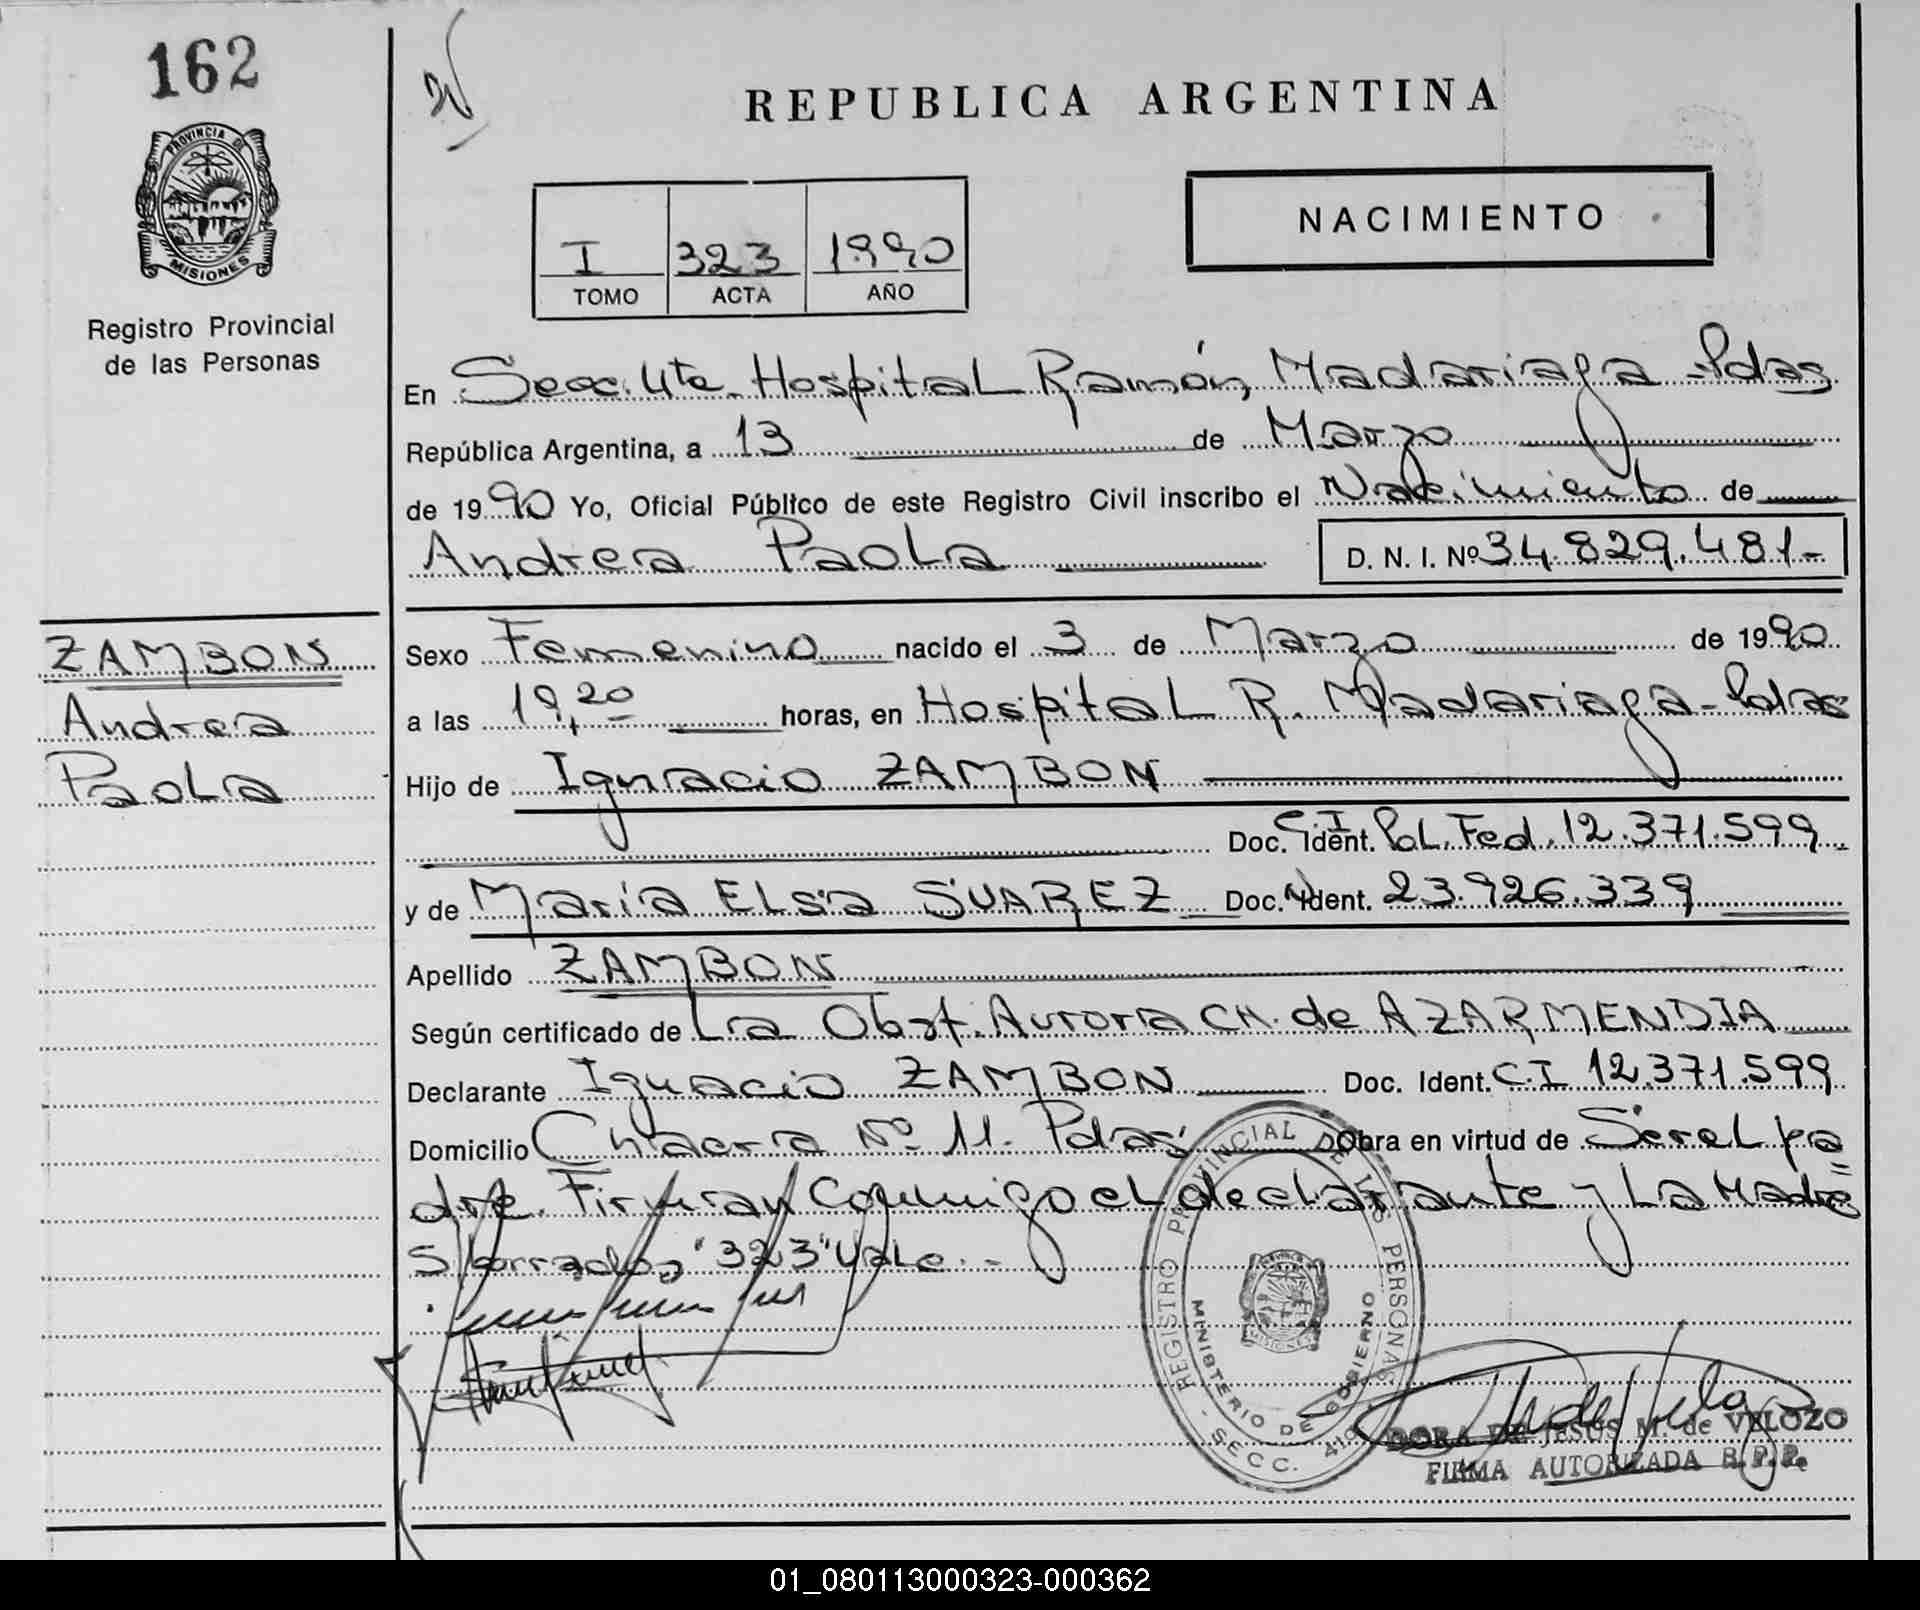 162
PROVINCIA DE
MISIONES
Registro Provincial
de las Personas
REPUBLICA ARGENTINA
NACIMIENTO
I 323 1990
TOMO ACTA AÑO
En Secc. 4ta. Hospital Ramón Madariaga - Pdas
República Argentina, a 13 de Marzo
de 1990 Yo, Oficial Público de este Registro Civil inscribo el Nacimiento de
Andrea Paola D. N. I. Nº 34.829.481-
ZAMBON
Andrea
Paola
Sexo Femenino nacido el 3 de Marzo de 1990
a las 19,20 horas, en Hospital R. Madariaga - Pdas
Hijo de Ignacio ZAMBON
Doc. Ident. C.I. Pol. Fed. 12.371.599
y de María Elsa SUAREZ Doc. Ident. 23.926.339
Apellido ZAMBON
Según certificado de La Obst. Aurora CH. de AZARMENDIA
Declarante Ignacio ZAMBON Doc. Ident. C.I 12.371.599
Domicilio Chacra Nº 11. Pdas Obra en virtud de Ser el pa=
dre. Firman conmigo el declarante y La Madre
S/borrado, "323" Vale.-
REGISTRO PROVINCIAL DE LAS PERSONAS
MINISTERIO DE GOBIERNO
- SECC. 4ta
MISIONES
DORA DE JESUS M. de VELOZO
FIRMA AUTORIZADA R.P.P.
01_080113000323-000362